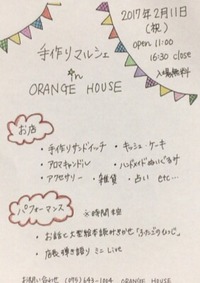 2017年2月11日
(祝)
open 11:00
16:30 close
入場無料
手作りマルシェ
in
ORANGE HOUSE
お店
・手作りサンドイッチ ・キッシュ ケーキ
・アロマキャンドル ・ハンドメイドぬいぐるみ
・アクセサリー ・雑貨 ・占い etc...
パフォーマンス ※時間
・お話と大型絵本読みきかせ「ふたごのひつじ」
・店長 弾き語り ミニ Live
お問い合わせ ORANGE HOUSE